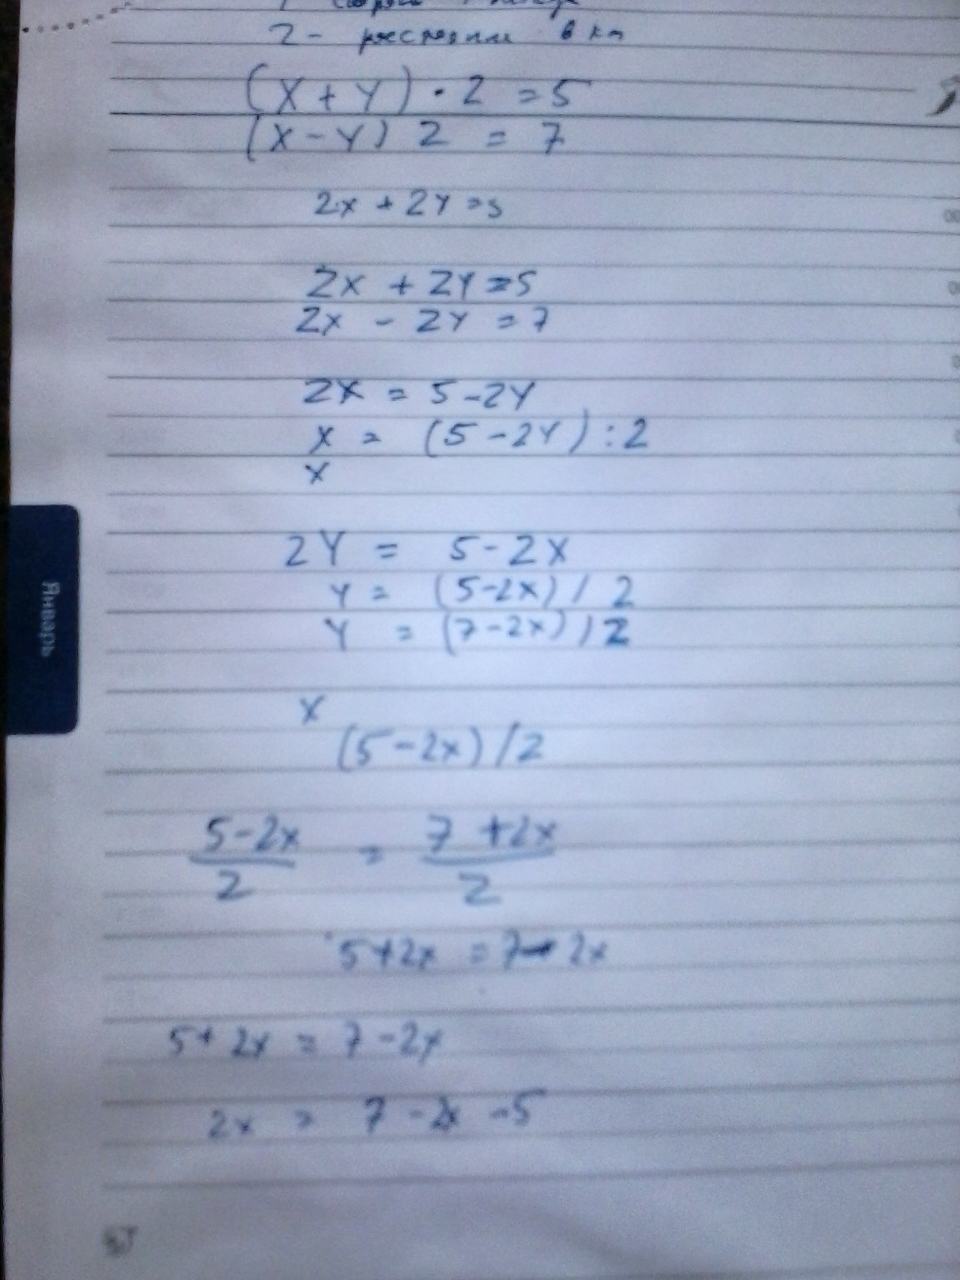 2 - расстояние в км
(X + Y) · 2 = 5
(X - Y) 2 = 7
2x + 2Y = 5
2x + 2Y = 5
2x - 2Y = 7
2X = 5 - 2Y
x = (5 - 2Y) : 2
x
2Y = 5 - 2x
Y = (5-2x) / 2
Y = (7-2x) / 2
x
(5-2x) / 2
5-2x / 2 = 7+2x / 2
5+2x = 7- 2x
5+ 2x = 7 - 2x
2x = 7 - 2x - 5
Январь